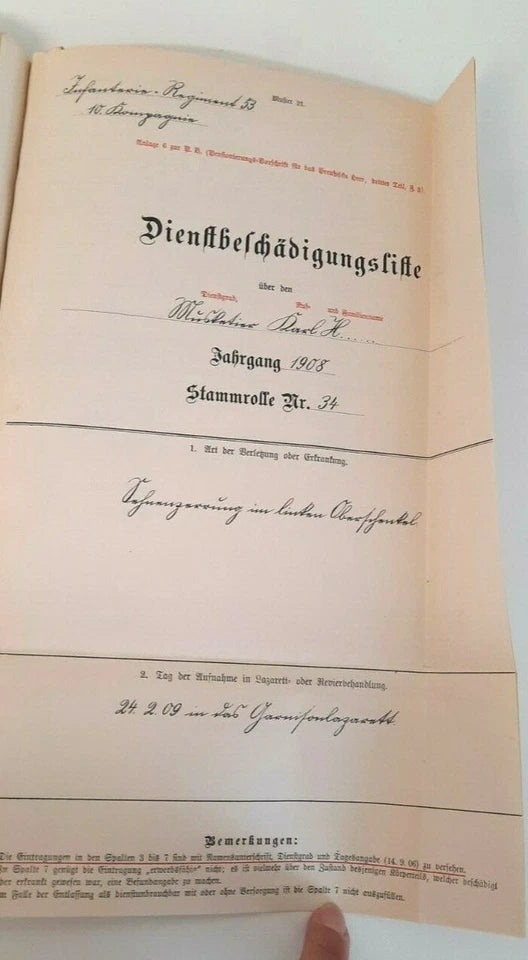 Infanterie-Regiment 53
10. Kompagnie
Muster 21.
Anlage 6 zur P. V. (Pensionierungs-Vorschrift für das Preußische Heer, dritter Teil, § 3)
Dienstbeschädigungsliste
über den
Dienstgrad, Ruf- und Familienname
Musketier Karl H.....
Jahrgang 1908
Stammrolle Nr. 34
1. Art der Verletzung oder Erkrankung.
Sehnenzerrung im linken Oberschenkel
2. Tag der Aufnahme in Lazarett- oder Revierbehandlung.
24. 2. 09 in das Garnisonlazarett.
Bemerkungen:
Die Eintragungen in den Spalten 3 bis 7 sind mit Namensunterschrift, Dienstgrad und Tagesangabe (14. 9. 06) zu versehen.
In Spalte 7 genügt die Eintragung „erwerbsfähig“ nicht; es ist vielmehr über den Zustand desjenigen Körperteils, welcher beschädigt
oder erkrankt gewesen war, eine Befundangabe zu machen.
Im Falle der Entlassung als dienstunbrauchbar mit oder ohne Versorgung ist die Spalte 7 nicht auszufüllen.